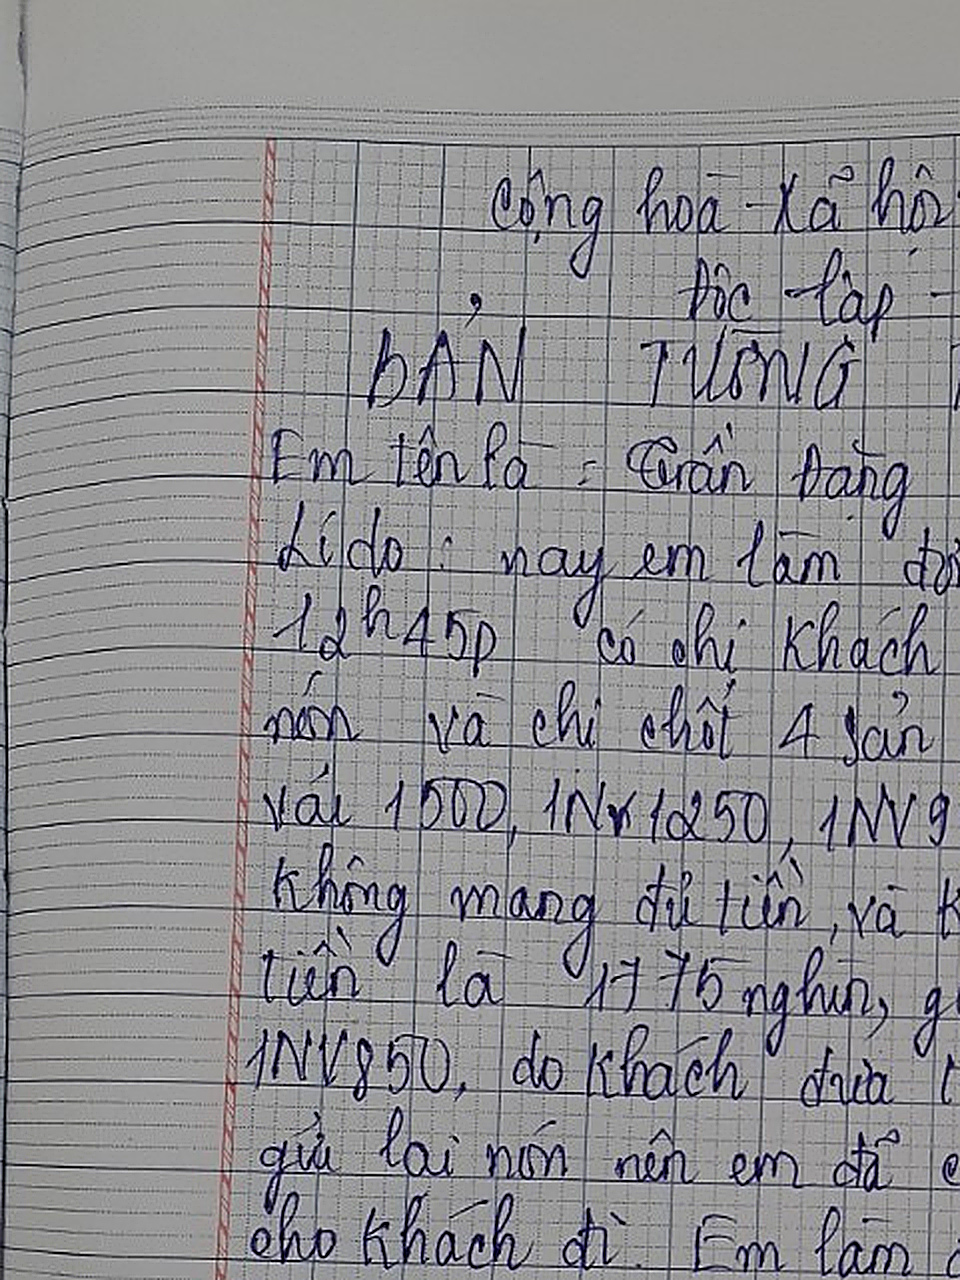 Cộng hoà Xã hội
Độc lập -
BẢN TƯỜNG
Em tên là: Trần Đăng
Lí do: nay em làm
12h45p có chị khách
nón và chị chốt 4 sản
vải 1500, 1NV1250, 1NV9
không mang đủ tiền, và
tiền là 1775 nghìn,
1NV850, do khách đưa
gửi lại nón nên em đã
cho khách đi. Em làm